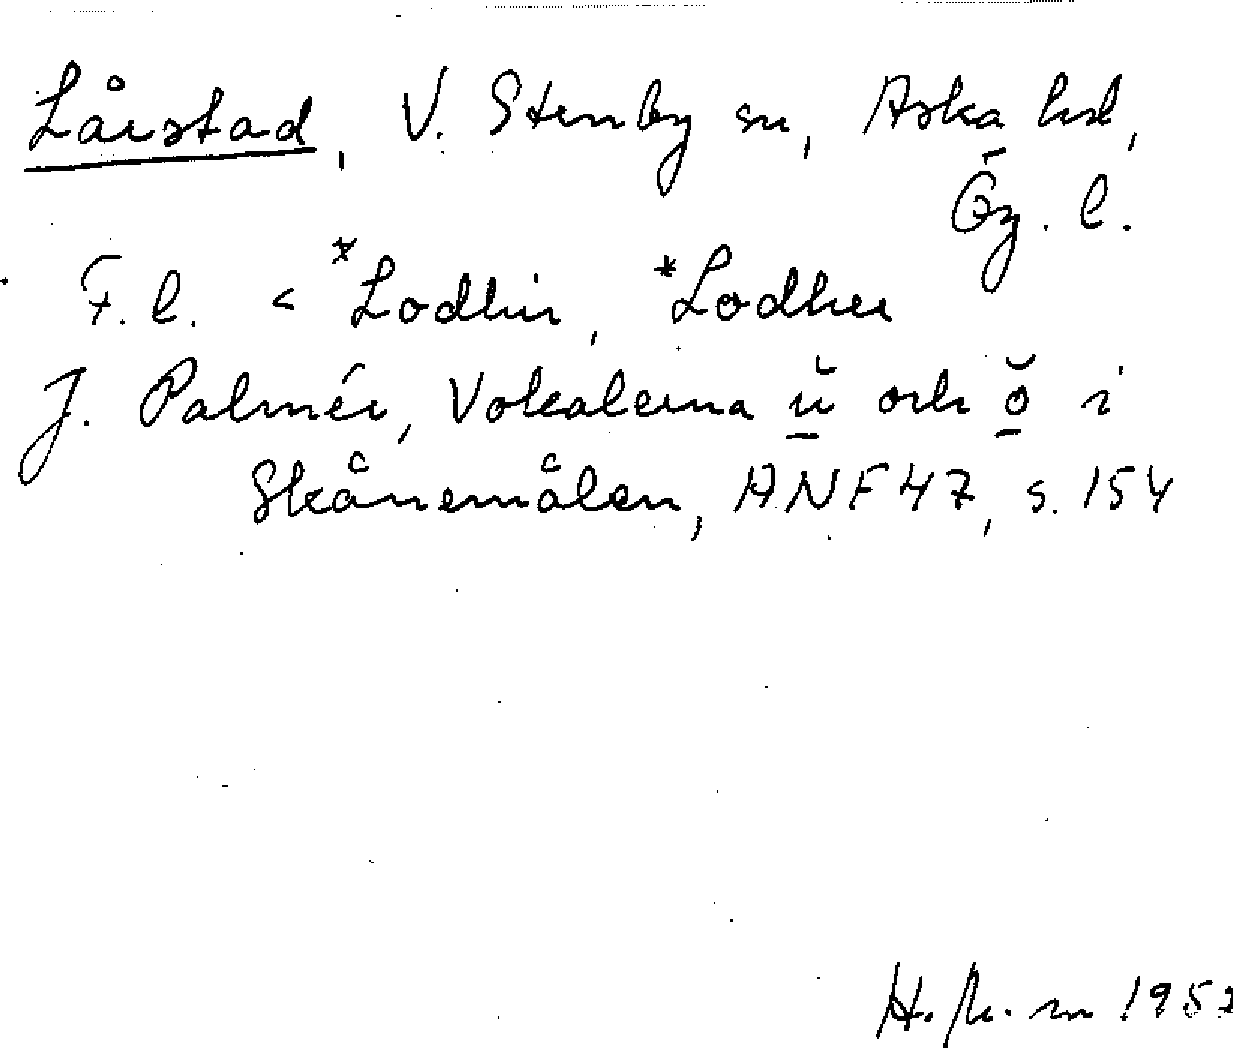 Lårstad, V. Stenby sn, Aska hd,
Ög. l.
F. l. < *Lodhir, *Lodher
J. Palmér, Vokalerna ŭ och ŏ i
Skånemålen, ANF 47, s. 154
1952